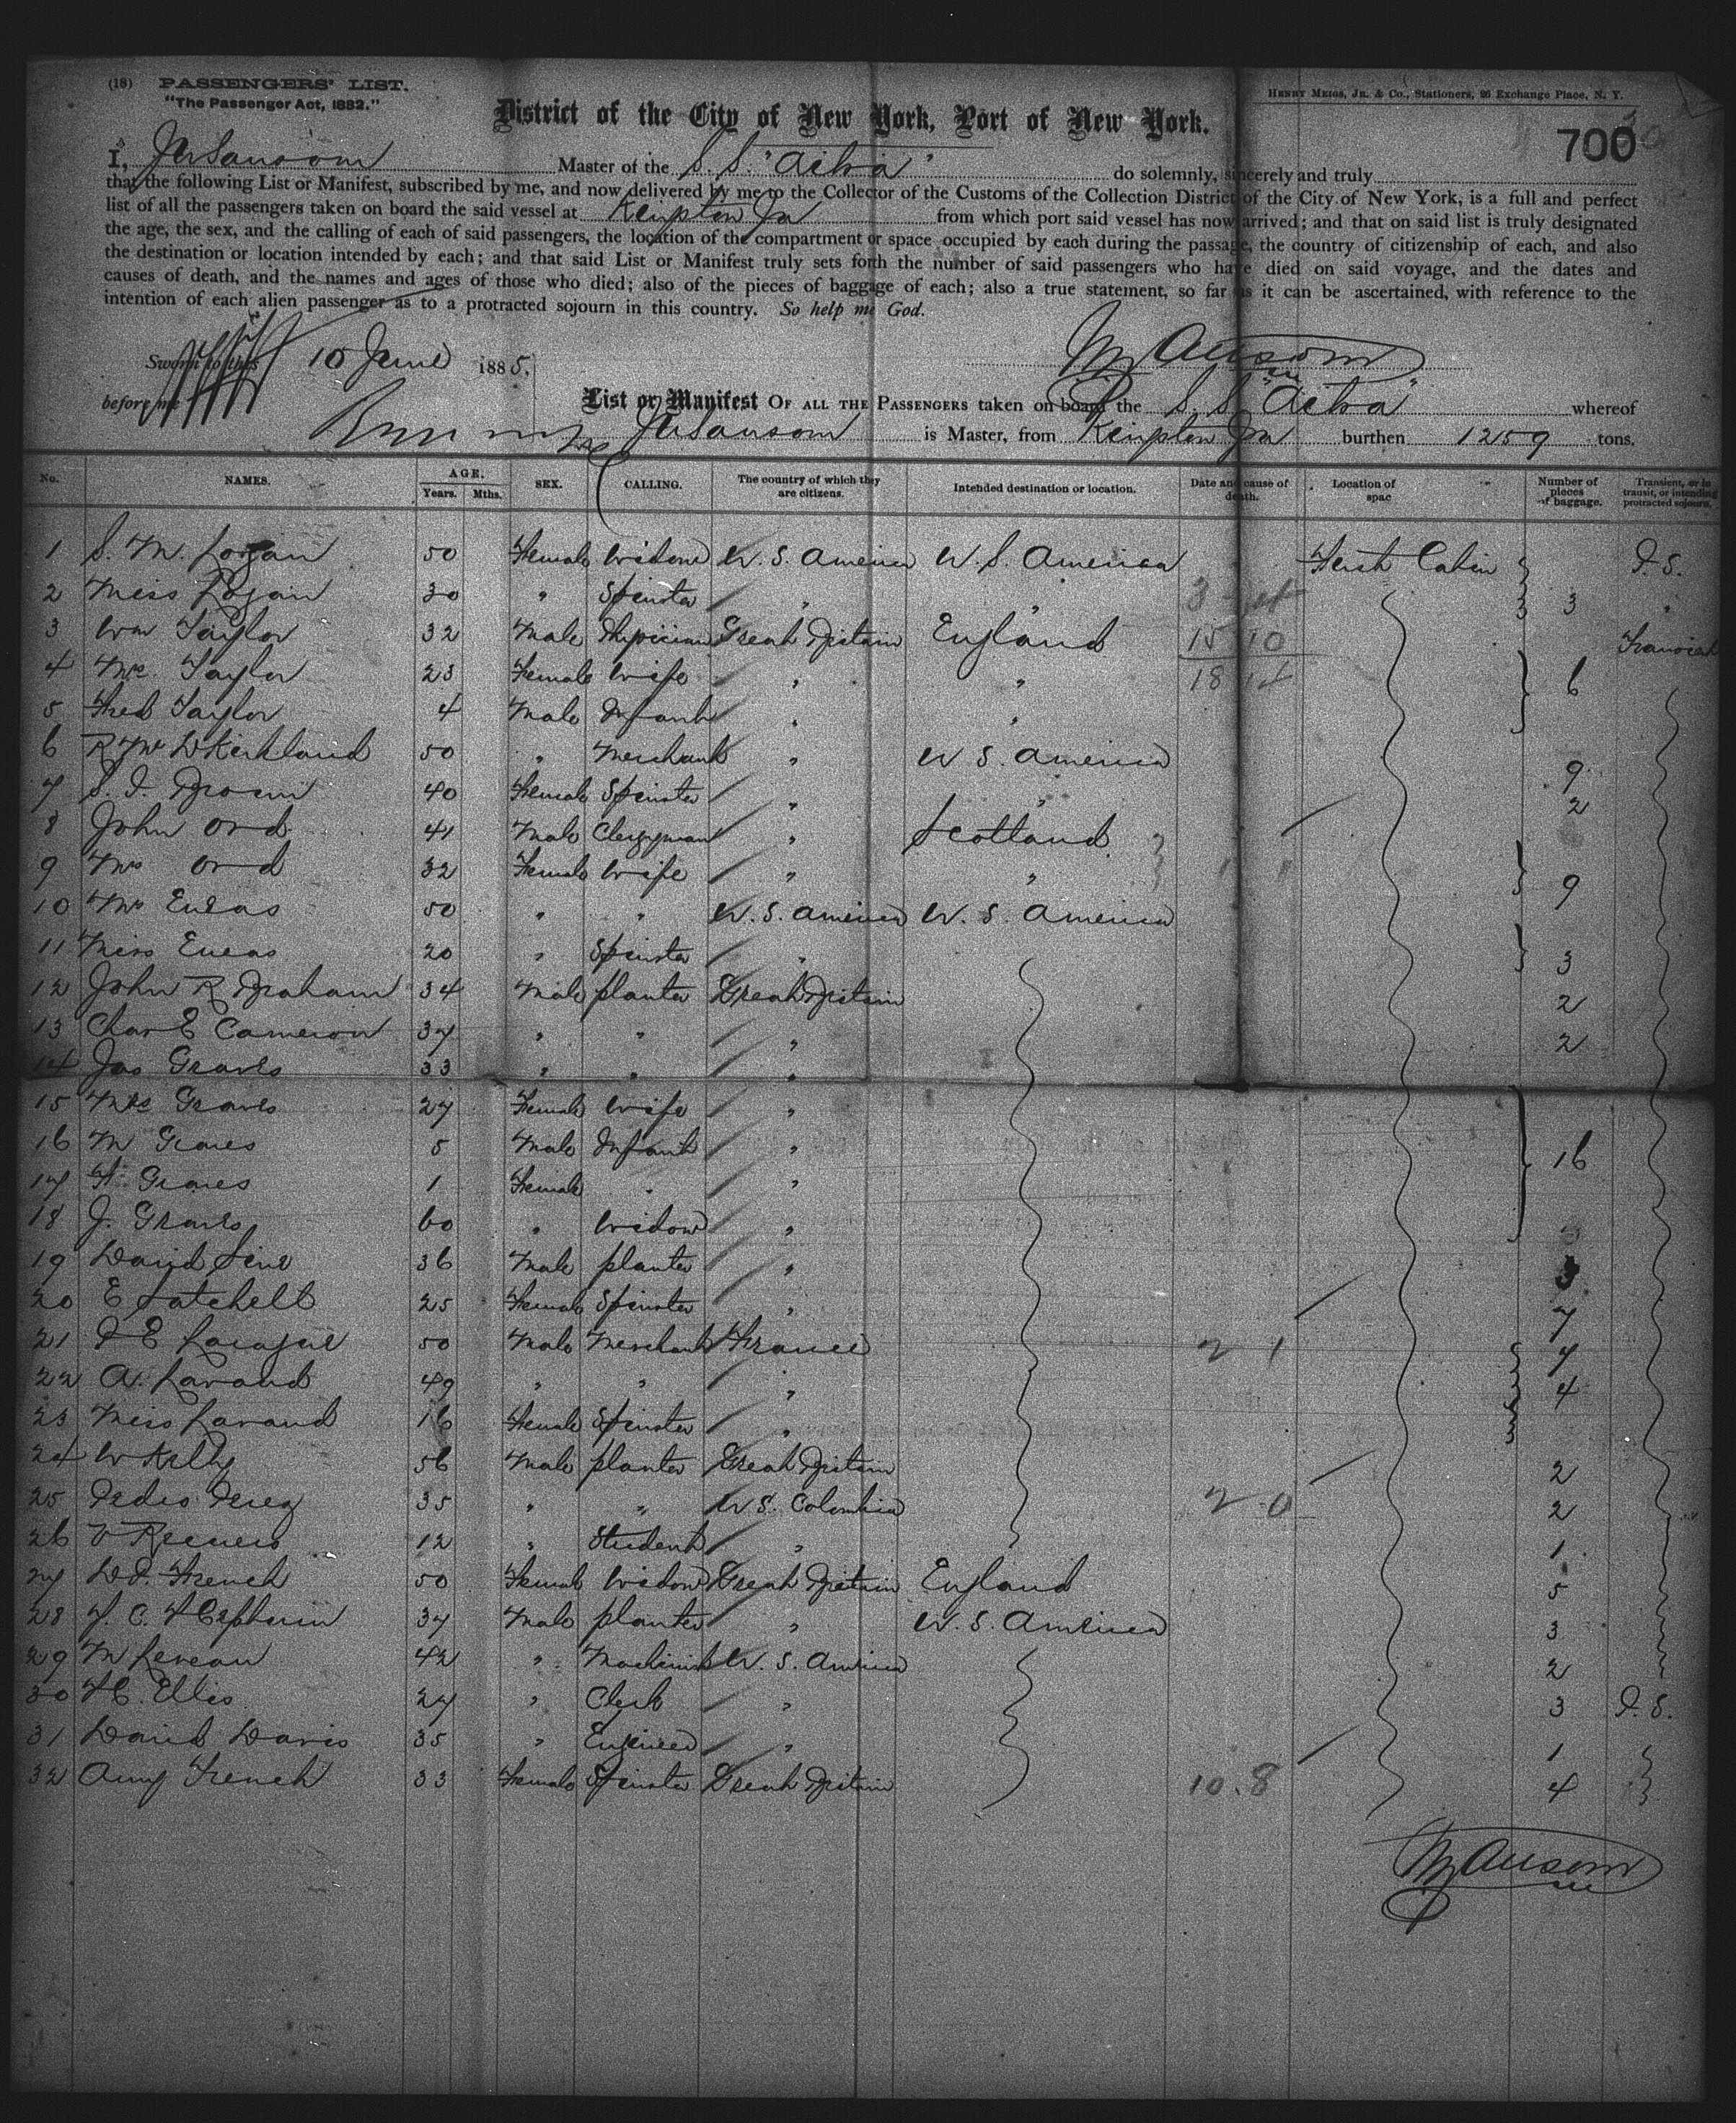 (18) PASSENGERS' LIST.
"The Passenger Act, 1882."
HENRY MEIGS, JR. & CO., Stationers, 26 Exchange Place, N. Y.
District of the City of New York, Port of New York.
700
I, JW Sansom Master of the S. S. "Ailsa" do solemnly, sincerely and truly
that the following List or Manifest, subscribed by me, and now delivered by me to the Collector of the Customs of the Collection District of the City of New York, is a full and perfect
list of all the passengers taken on board the said vessel at Kingston Ja from which port said vessel has now arrived; and that on said list is truly designated
the age, the sex, and the calling of each of said passengers, the location of the compartment or space occupied by each during the passage, the country of citizenship of each, and also
the destination or location intended by each; and that said List or Manifest truly sets forth the number of said passengers who have died on said voyage, and the dates and
causes of death, and the names and ages of those who died; also of the pieces of baggage of each; also a true statement, so far as it can be ascertained, with reference to the
intention of each alien passenger as to a protracted sojourn in this country. So help me God.
Sworn to this 10 June 1885,
before me
List or Manifest OF ALL THE PASSENGERS taken on board the S. S. "Ailsa" whereof
JW Sansom is Master, from Kingston Ja burthen 1259 tons.
No. NAMES. AGE. Years. Mths. SEX. CALLING. The country of which they are citizens. Intended destination or location. Date and cause of death. Location of spac Number of pieces of baggage. Transient, or in transit, or intending protracted sojourn.
1 S. M. Logan 50 Female Widow U. S. America U. S. America First Cabin P. S.
2 Miss Logan 30 " Spinster " " 3 "
3 Wm Taylor 32 Male Physician Great Britain England 15 10 Transient
4 Mrs. Taylor 23 Female Wife " " 18 14 6
5 Fred Taylor 4 Male Infant " "
6 50 " Merchant " U S. America 9
7 S. I. Brown 40 Female Spinster " " 2
8 John Ord 41 Male Clergyman " Scotland
9 Mrs Ord 32 Female Wife " " 9
10 Mrs Eneas 50 " " U. S. America U. S. America
11 Miss Eneas 20 " Spinster " 3
12 John R Graham 34 Male planter Great Britain 2
13 Chas E Cameron 37 " " " 2
14 Jas Graves 33 " " "
15 Mrs Graves 27 Female Wife "
16 M Graves 5 Male Infant " 16
17 F. Graves 1 Female " "
18 J. Graves 60 " Widow "
19 David 36 Male planter " 3
20 E Satchell 25 Female Spinster " 7
21 50 Male Merchant France 2 1 7
22 A. Lavaud 49 " " " 4
23 Miss Lavaud 16 Female Spinster "
24 W Kelly 56 Male planter Great Britain 2
25 Pedro Perez 35 " " U S. Colombia 2 0 2
26 12 " Student " 1
27 French 50 Female Widow Great Britain England 5
28 37 Male planter " U. S. America 3
29 M 42 " Machinist U. S. America 2
30 H C. Ellis 27 " Clerk " 3 P. S.
31 David Davis 35 " Engineer " 1
32 Amy French 33 Female Spinster Great Britain 10. 8 4
JW Sansom